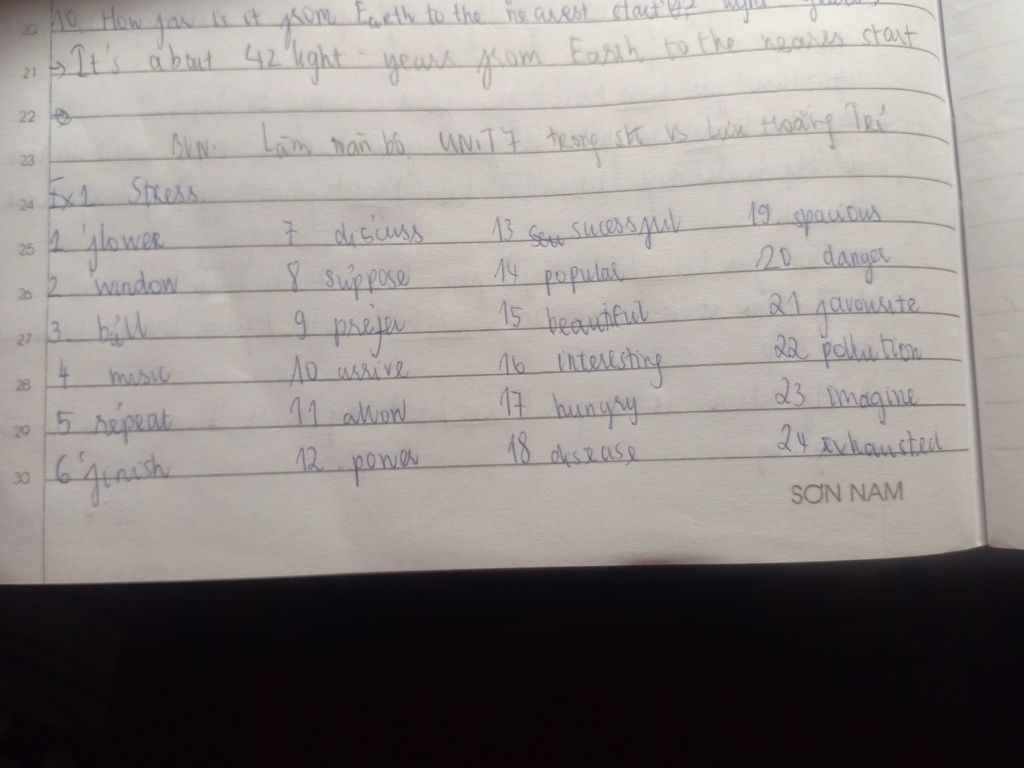 20 10. How far is it from Earth to the nearest start 4,2 light years?
21 → It's about 42 light - years from Earth to the neares start
22
23 BVN Làm toàn bộ UNIT 7 trong sk vs Lưu Hoằng Trí
24 Ex1 Stress
25 1 'flower 7 dis'cuss 13 sucessful 19 spacious
26 2 'window 8 su'ppose 14 popular 20 danger
27 3. ball 9 pre'fer 15 beautiful 21 favourite
28 4 music 10 arrive 16 interesting 22 pollution
29 5 re'peat 11 allow 17 hungry 23 imagine
30 6 'finish 12 power 18 disease 24 exhausted
SƠN NAM